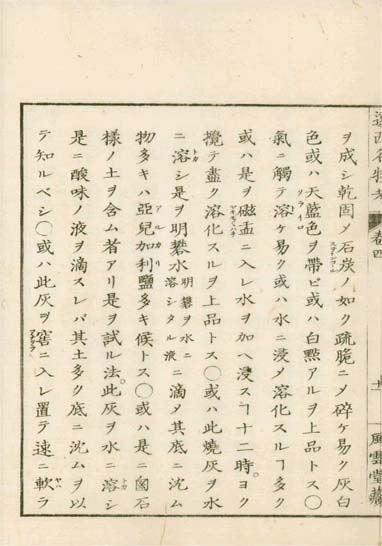 遠西名物考 卷四 十一 風雲堂藏
ヲ成シ乾固メ石炭ノ如ク疏脆ニメ碎ケ易ク灰白
色或ハ天藍色ヲ帶ビ或ハ白㸃アルヲ上品トス〇
氣ニ觸テ溶ケ易ク或ハ水ニ浸メ溶化スルヿ多ク
或ハ是ヲ磁盂ニ入レ水ヲ加ヘ浸スヿ十二時。ヨク
攪テ盡ク溶化スルヲ上品トス〇或ハ此燒灰ヲ水
ニ溶シ是ヲ明礬水明礬ヲ水ニ溶シタル液ニ滴メ其底ニ沈ム
物多キハ亞兒加利鹽多キ候トス〇或ハ是ニ鹵石
樣ノ土ヲ含ム者アリ是ヲ試ル法。此灰ヲ水ニ溶シ
是ニ酸味ノ液ヲ滴スレバ其土多ク底ニ沈ムヲ以
テ知ルベシ〇或ハ此灰ヲ窖ニ入レ置テ速ニ軟ラ